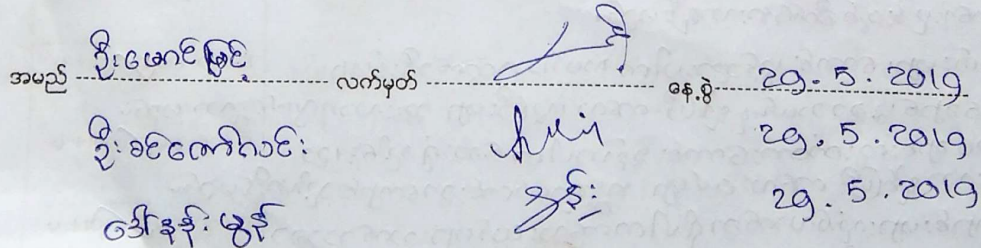 အမည် ဦးမောင်မြင့် လက်မှတ် နေ့စွဲ 29.5.2019
ဦးခင်ကျော်လင်း 29.5.2019
ဒေါ်နန်းမွန် 29.5.2019